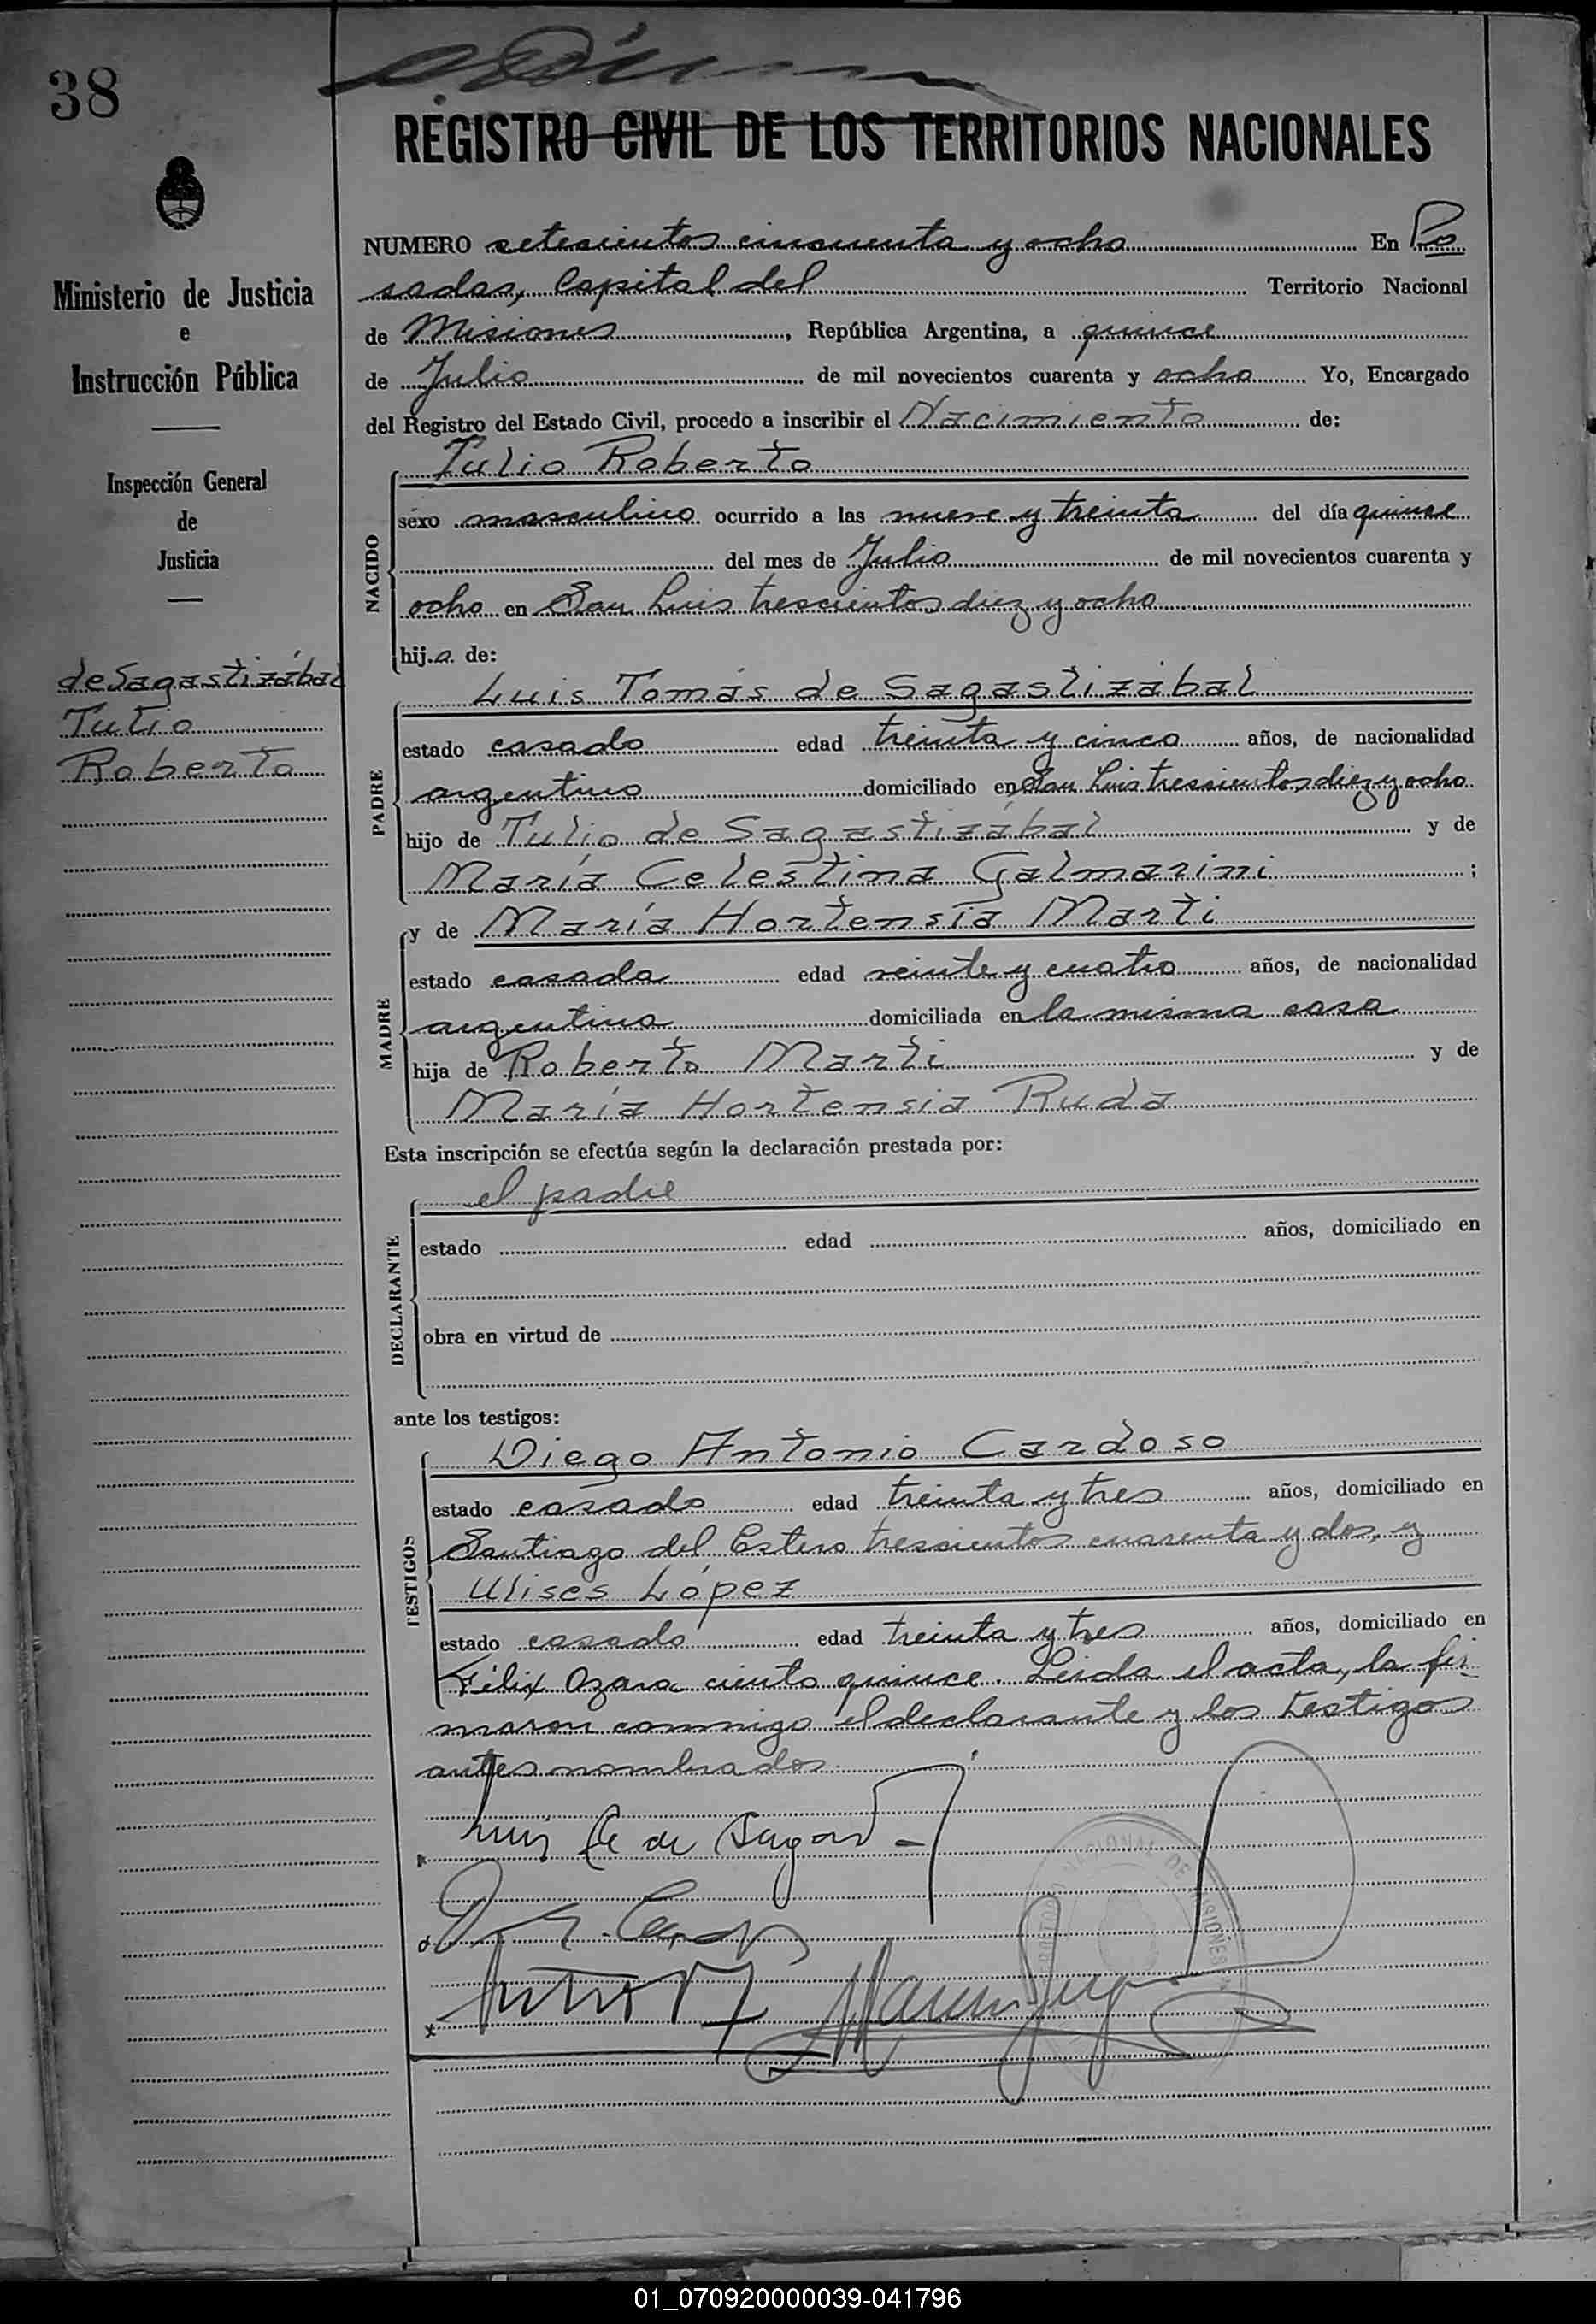 38
REGISTRO CIVIL DE LOS TERRITORIOS NACIONALES
Ministerio de Justicia
e
Instrucción Pública
Inspección General
de
Justicia
de Sagastizábal
Tulio
Roberto
NUMERO setecientos cincuenta y ocho En Po
sadas, Capital del Territorio Nacional
de Misiones, República Argentina, a quince
de Julio de mil novecientos cuarenta y ocho Yo, Encargado
del Registro del Estado Civil, procedo a inscribir el Nacimiento de:
Tulio Roberto
NACIDO
sexo masculino ocurrido a las nueve y treinta del día quince
del mes de Julio de mil novecientos cuarenta y
ocho en San Luis trescientos diez y ocho
hijo de:
Luis Tomás de Sagastizábal
PADRE
estado casado edad treinta y cinco años, de nacionalidad
argentino domiciliado en San Luis trescientos diez y ocho
hijo de Tulio de Sagastizábal y de
María Celestina Galmarini ;
y de María Hortensia Marti
MADRE
estado casada edad veinte y cuatro años, de nacionalidad
argentina domiciliada en la misma casa
hija de Roberto Marti y de
María Hortensia Ruda
Esta inscripción se efectúa según la declaración prestada por:
el padre
DECLARANTE
estado edad años, domiciliado en
obra en virtud de
ante los testigos:
Diego Antonio Cardoso
TESTIGOS
estado casado edad treinta y tres años, domiciliado en
Santiago del Estero trescientos cuarenta y dos, y
Ulises López
estado casado edad treinta y tres años, domiciliado en
Félix Azara ciento quince. Leida el acta, la fir
maron conmigo el declarante y los testigos
antes nombrados
Luis de Sagas
NACIONAL DE MISIONES
01_070920000039-041796